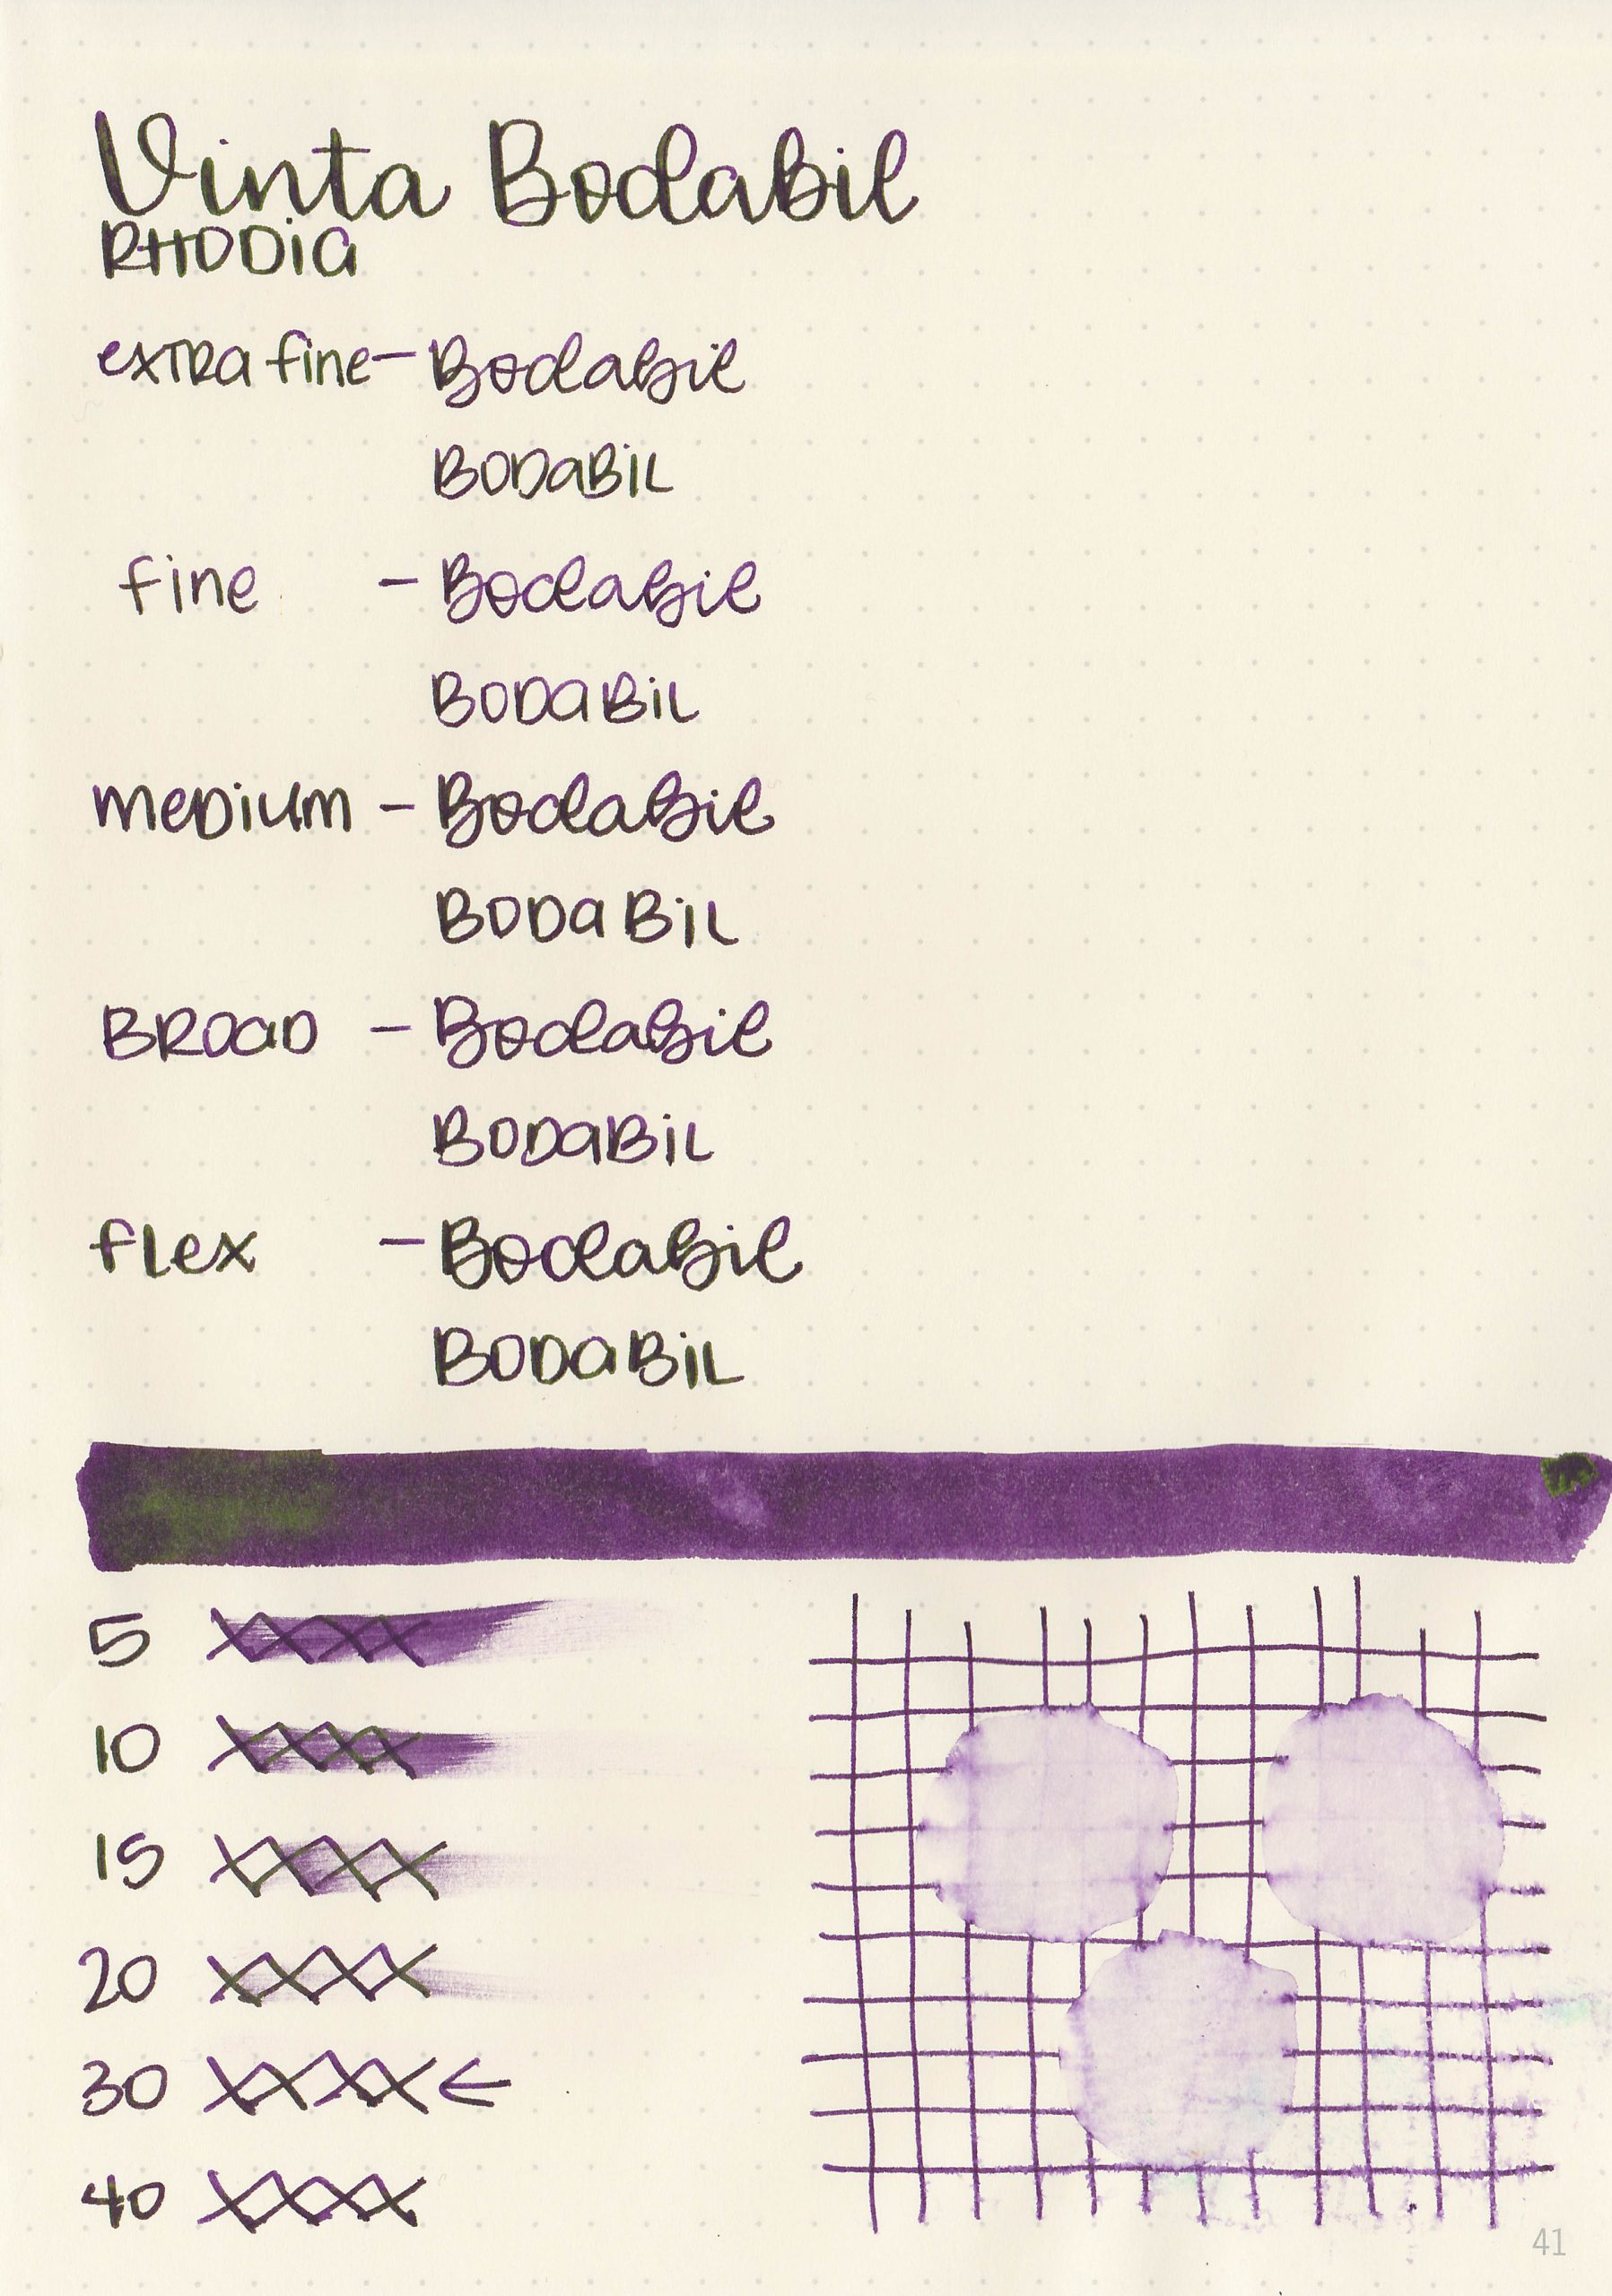 Vinta Bodabil
RHODIA
extra fine - Bodabil
BODABIL
fine - Bodabil
BODABIL
medium - Bodabil
BODABIL
BROAD - Bodabil
BODABIL
flex - Bodabil
BODABIL
5 XXXX
10 XXXX
15 XXXX
20 XXXX
30 XXXX ←
40 XXXX
41